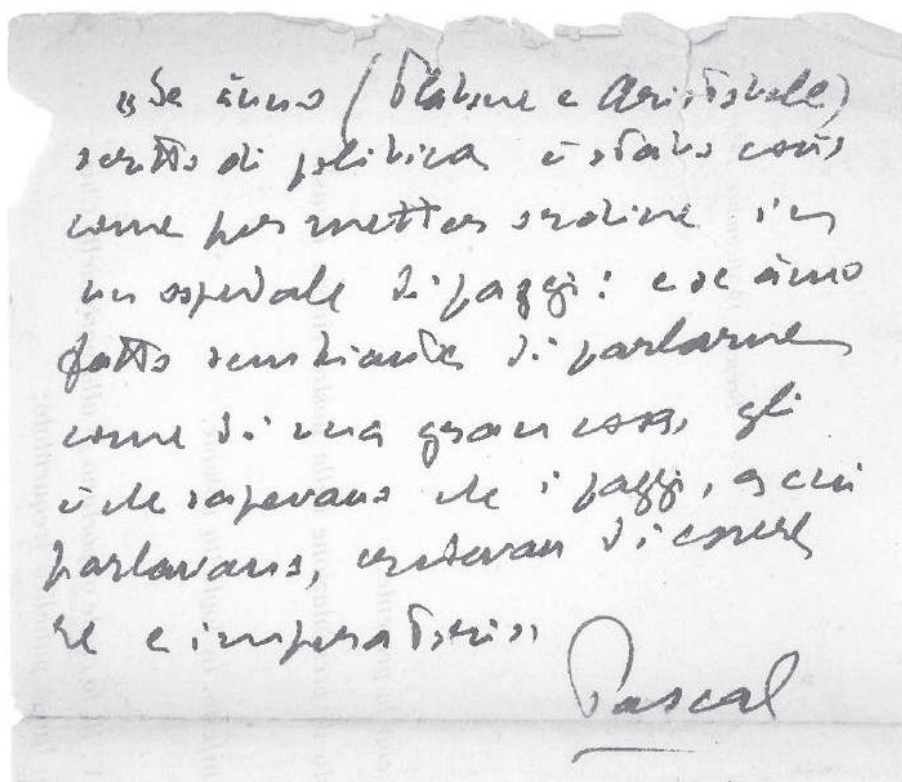 „Se ànno (Platone e Aristotele)
scritto di politica è stato così
come per metter ordine in
un ospedale di pazzi: e se ànno
fatto sembiante di parlarne
come di una gran cosa, gli
è che sapevano che i pazzi, a cui
parlavano, credevan di essere
re e imperatori"
Pascal